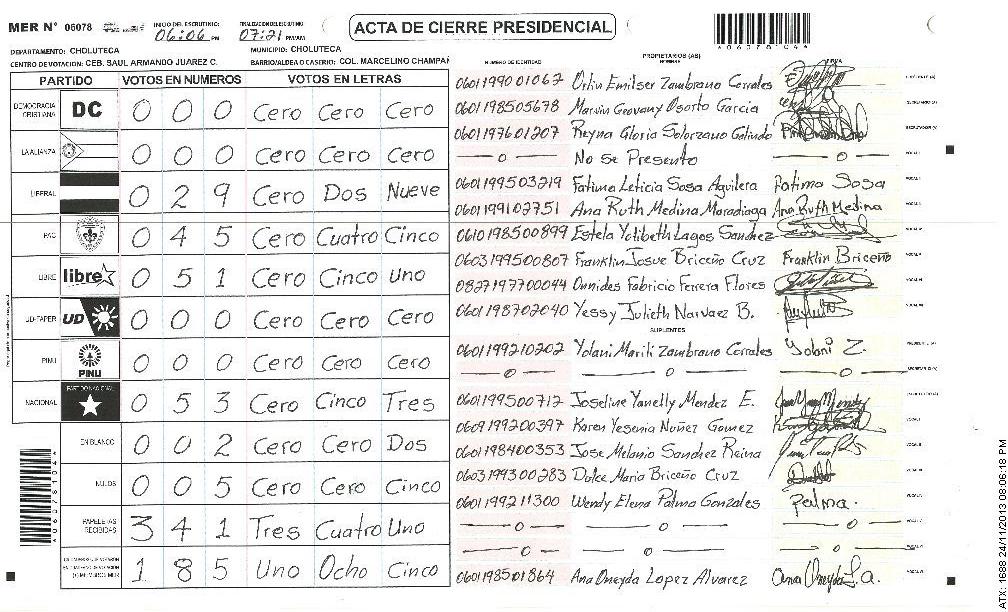 MER N° 06078 INICIO DEL ESCRUTINIO: 06:06 PM FINALIZACION DEL ESCRUTINIO 07:21 PM/AM ACTA DE CIERRE PRESIDENCIAL *060781044*
DEPARTAMENTO: CHOLUTECA MUNICIPIO: CHOLUTECA
CENTRO DE VOTACION: CEB. SAUL ARMANDO JUAREZ C. BARRIO/ALDEA O CASERIO: COL. MARCELINO CHAMPA
PARTIDO VOTOS EN NUMEROS VOTOS EN LETRAS
DEMOCRACIA CRISTIANA DC 0 0 0 Cero Cero Cero
LA ALIANZA 0 0 0 Cero Cero Cero
LIBERAL 0 2 9 Cero Dos Nueve
PAC 0 4 5 Cero Cuatro Cinco
LIBRE libre 0 5 1 Cero Cinco Uno
UD-FAPER UD 0 0 0 Cero Cero Cero
PINU PINU 0 0 0 Cero Cero Cero
NACIONAL PARTIDO NACIONAL 0 5 3 Cero Cinco Tres
EN BLANCO 0 0 2 Cero Cero Dos
NULOS 0 0 5 Cero Cero Cinco
PAPELETAS RECIBIDAS 3 4 1 Tres Cuatro Uno
1 8 5 Uno Ocho Cinco
NUMERO DE IDENTIDAD PROPIETARIOS (AS) NOMBRE FIRMA
0601199001067 Orlin Emilser Zambrano Corrales
0601198505678 Marvin Geovany Osorto Garcia
0601197601207 Reyna Gloria Solorzano Galindo
— 0 — No se Presento — 0 —
0601199503219 Fatima Leticia Sosa Aguilera Fatima Sosa
0601199102751 Ana Ruth Medina Maradiaga Ana Ruth Medina
0610198500899 Estela Yolibeth Lagos Sanchez
0603199500807 Franklin Josue Briceño Cruz Franklin Briceño
0827197700044 Ferrera Flores
0601198702040 Yessy Julieth Narvaez B.
SUPLENTES
0601199210202 Yolani Marili Zambrano Corrales Yolani Z.
— 0 — — 0 — — 0 —
0601199500717 Joseline Yanelly Mendez E.
0609199200397 Karen Yesenia Nuñez Gomez
0601198400353 Jose Melanio Sanchez Reina
0603199300283 Dulce Maria Briceño Cruz
0601199211300 Wendy Elena Palma Gonzales Palma.
— 0 — — 0 — — 0 —
— 0 — — 0 — — 0 —
0601198501864 Ana Oneyda Lopez Alvarez Ana Oneyda L.a.
*060781044*
ATX: 1688 24/11/2013 08:06:18 PM